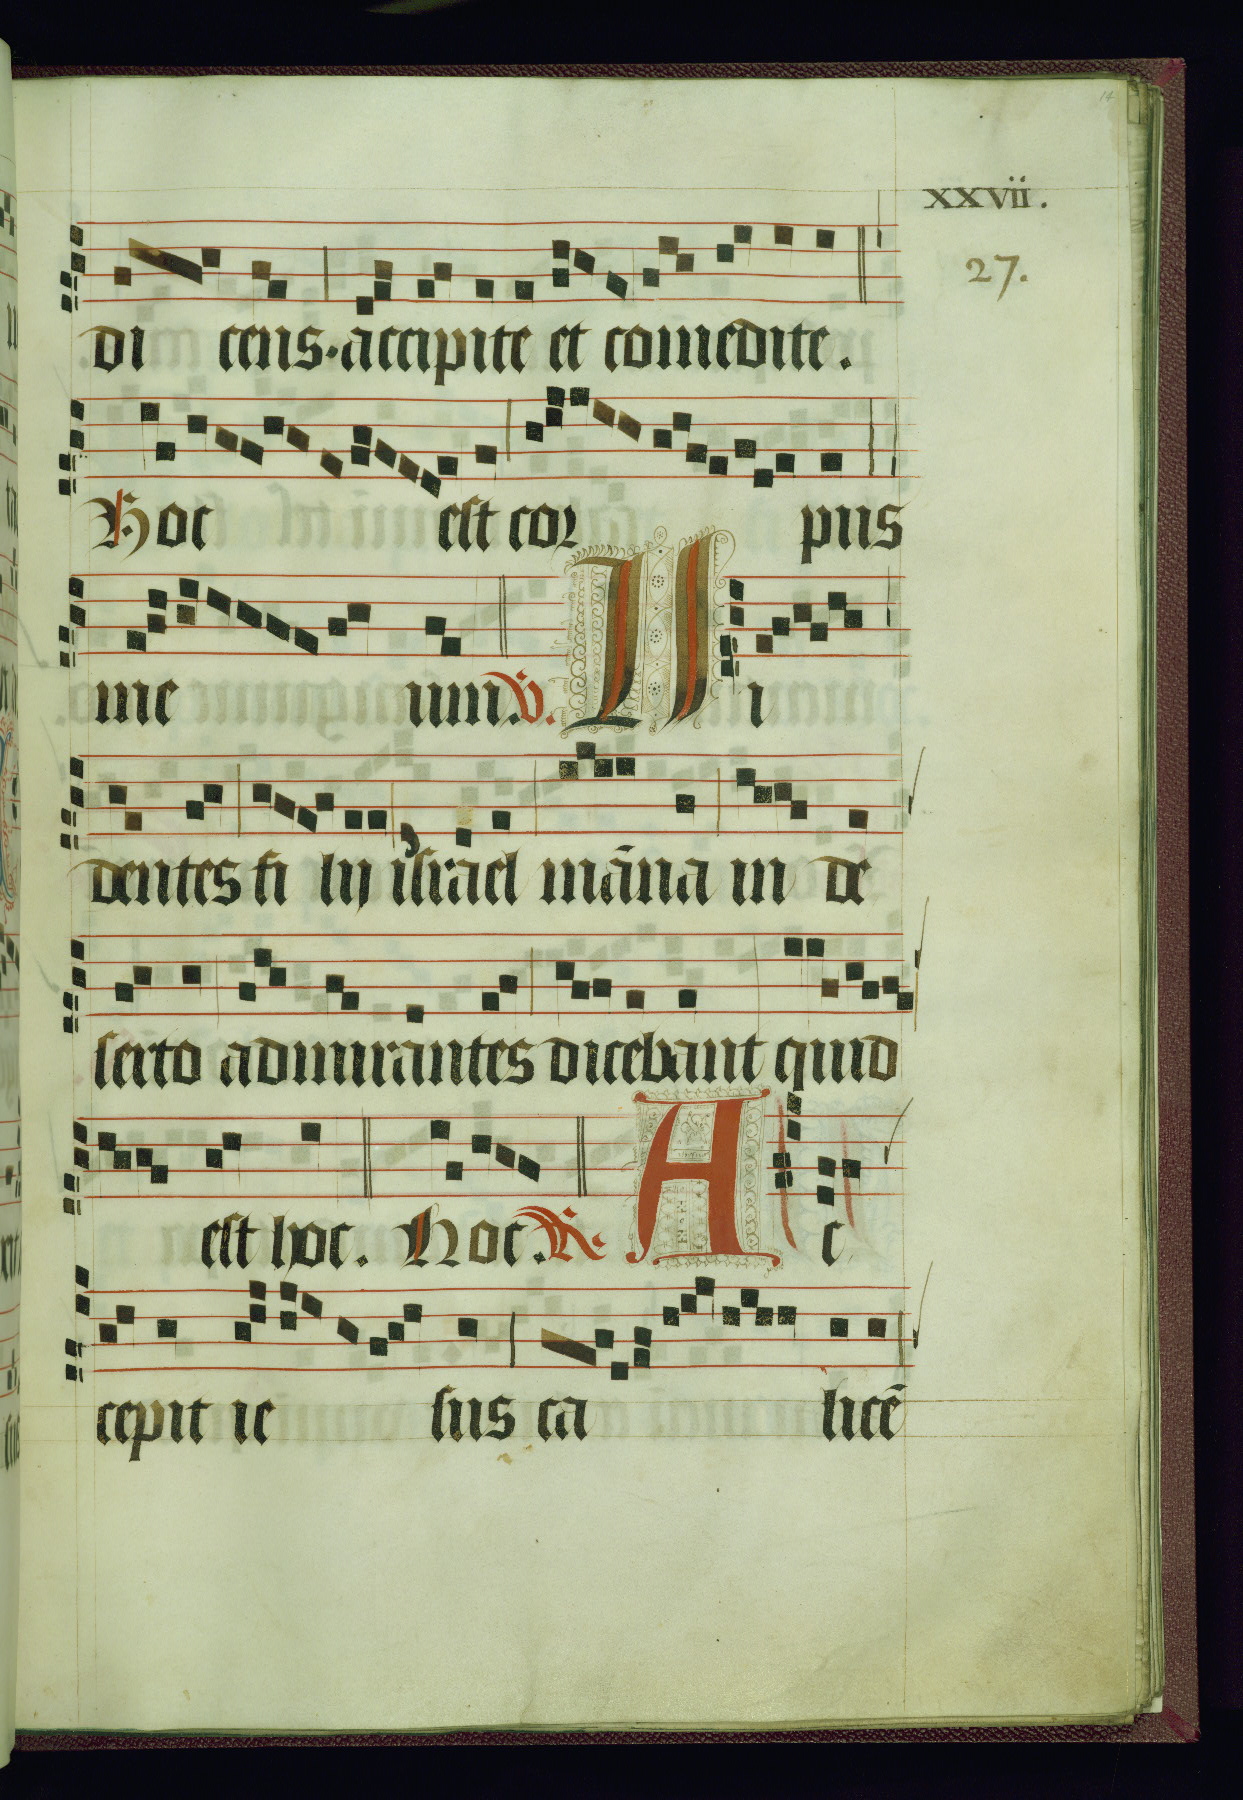 14
xxvii.
27.
di cens. accipite et comedite.
Hoc est cor pus
me um. V. U i
dentes fi lij israel māna in de
serto admirantes dicebant quid
est hoc. Hoc. R. A c
cepit ie sus ca licē